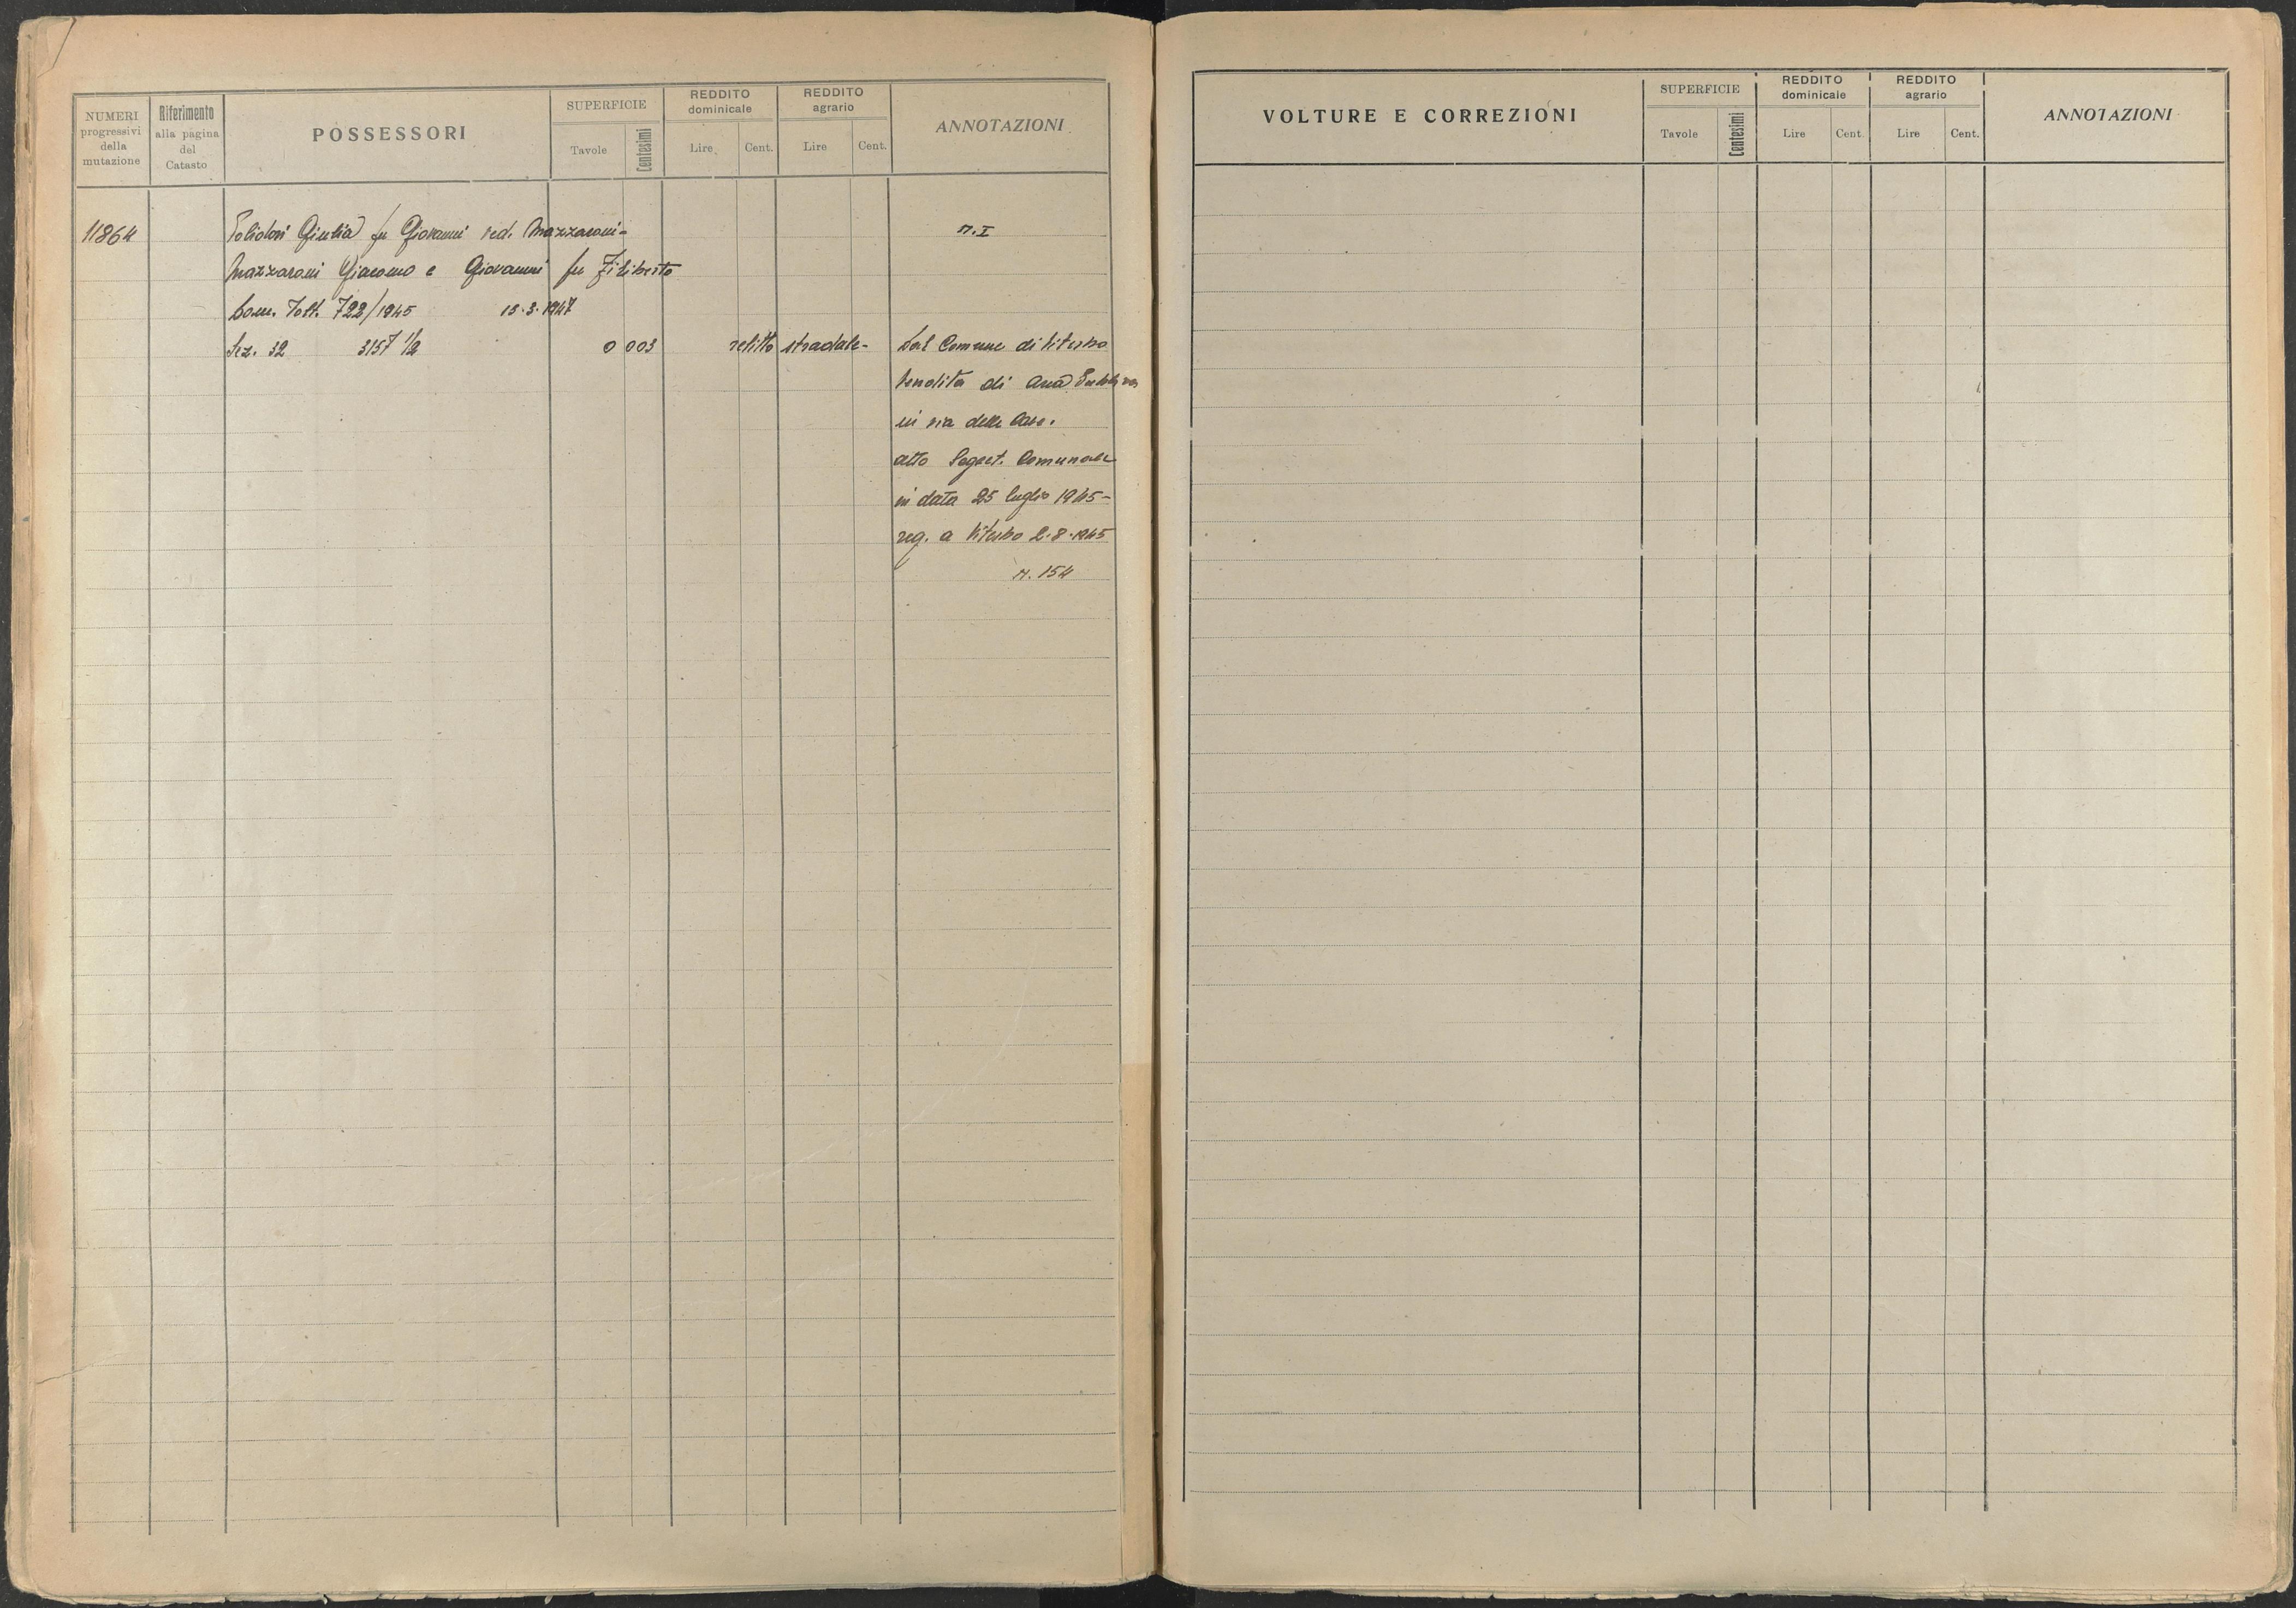 NUMERI progressivi della mutazione
Riferimento alla pagina del Catasto
POSSESSORI
SUPERFICIE
Tavole
Centesimi
REDDITO dominicale
Lire
Cent.
REDDITO agrario
Lire
Cent.
ANNOTAZIONI
11864
Polidori Giulia fu Giovanni ved. Mazzaroni-
n. I
Mazzaroni Giacomo e Giovanni fu Filiberto
Dom. Volt. 722/1945 15.3.1947
Sez. 32 3157 1/2 0 003 relitto stradale-
Dal Comune di Viterbo
Vendita di area
in via delle
atto Segret. Comunale
in data 25 luglio 1945-
reg. a Viterbo 2.8.1945
n. 154
VOLTURE E CORREZIONI
SUPERFICIE
Tavole
Centesimi
REDDITO dominicale
Lire
Cent.
REDDITO agrario
Lire
Cent.
ANNOTAZIONI